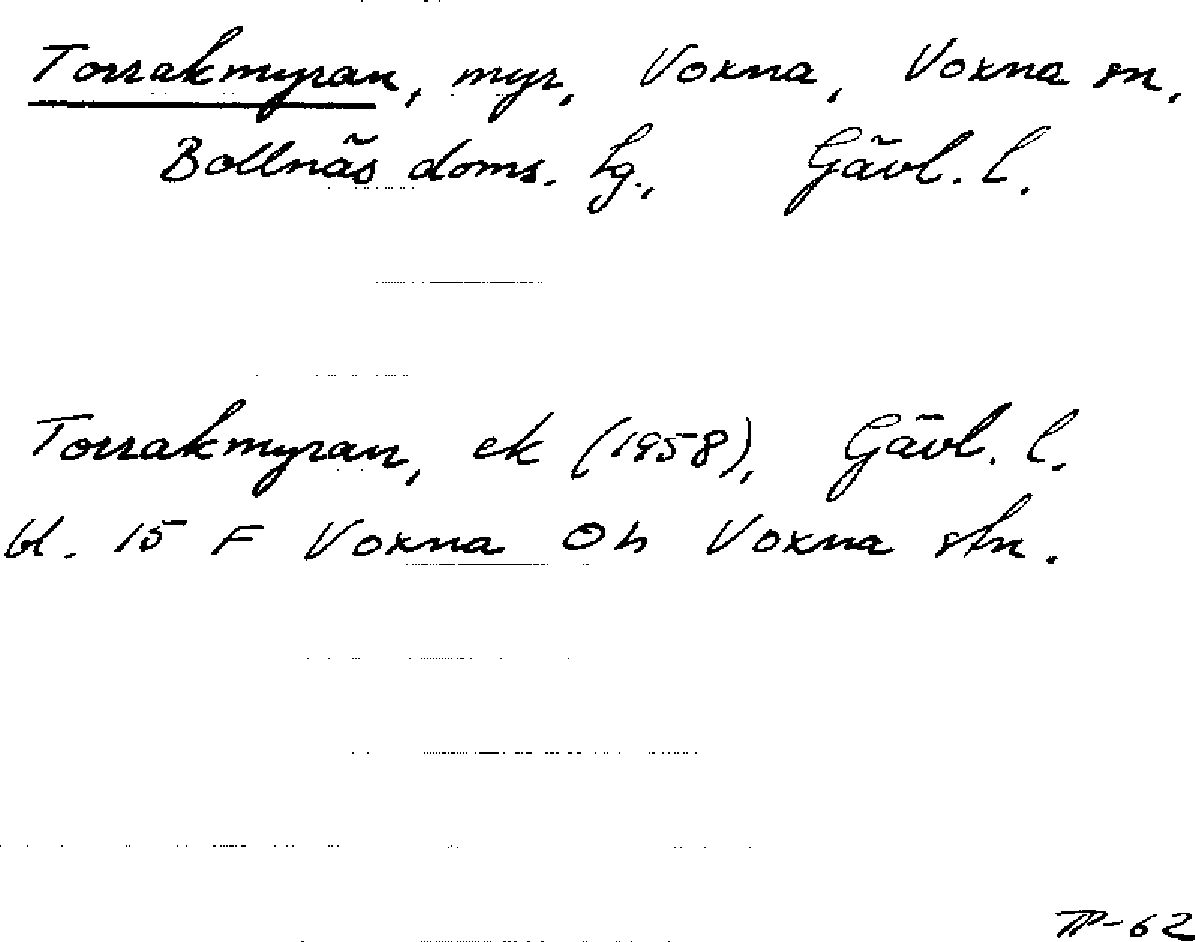 Torrakmyran, myr, Voxna, Voxna sn,
Bollnäs doms. lg., Gävl. l.
Torrakmyran, ek (1958), Gävl. l.
bl. 15 F Voxna Oh Voxna stn.
TP-62